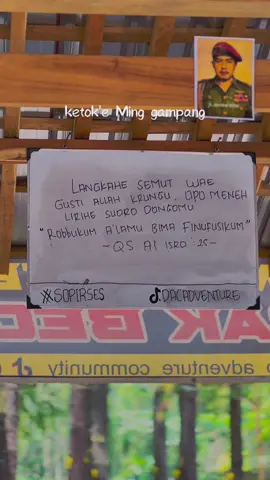 ketok'e Ming gampang
LANGKAHE SEMUT WAE
GUSTI ALLAH KRUNGU, OPO MENEH
LIRIHE SUORO DONGOMU
"ROBBUKUM A'LAMU BIMA FINUFUSIKUM"
- QS Al ISRO : 25 -
#SOPIRSES
DACADVENTURE
adventure community
ketok'e Ming gampang